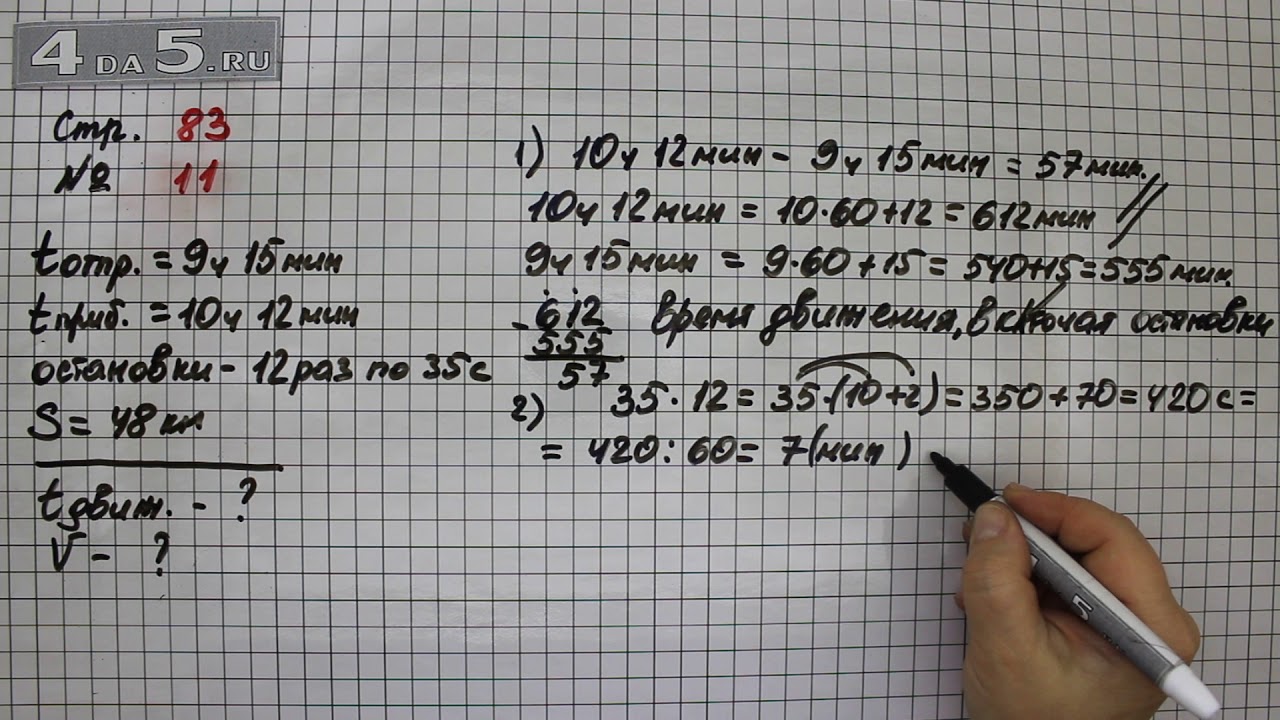 4 DA 5.RU
Стр. 83
№ 11
t отпр. = 9ч 15мин
t приб. = 10ч 12мин
остановки - 12 раз по 35с
S = 48 км
t движ. - ?
V - ?
1) 10ч 12мин - 9ч 15мин = 57мин.
10ч 12мин = 10·60+12 = 612мин
9ч 15мин = 9·60+15 = 540+15=555мин.
612 Время движения, включая остановки
- 555
57
2) 35·12 = 35·(10+2) = 350+70=420с =
= 420:60= 7(мин)
5